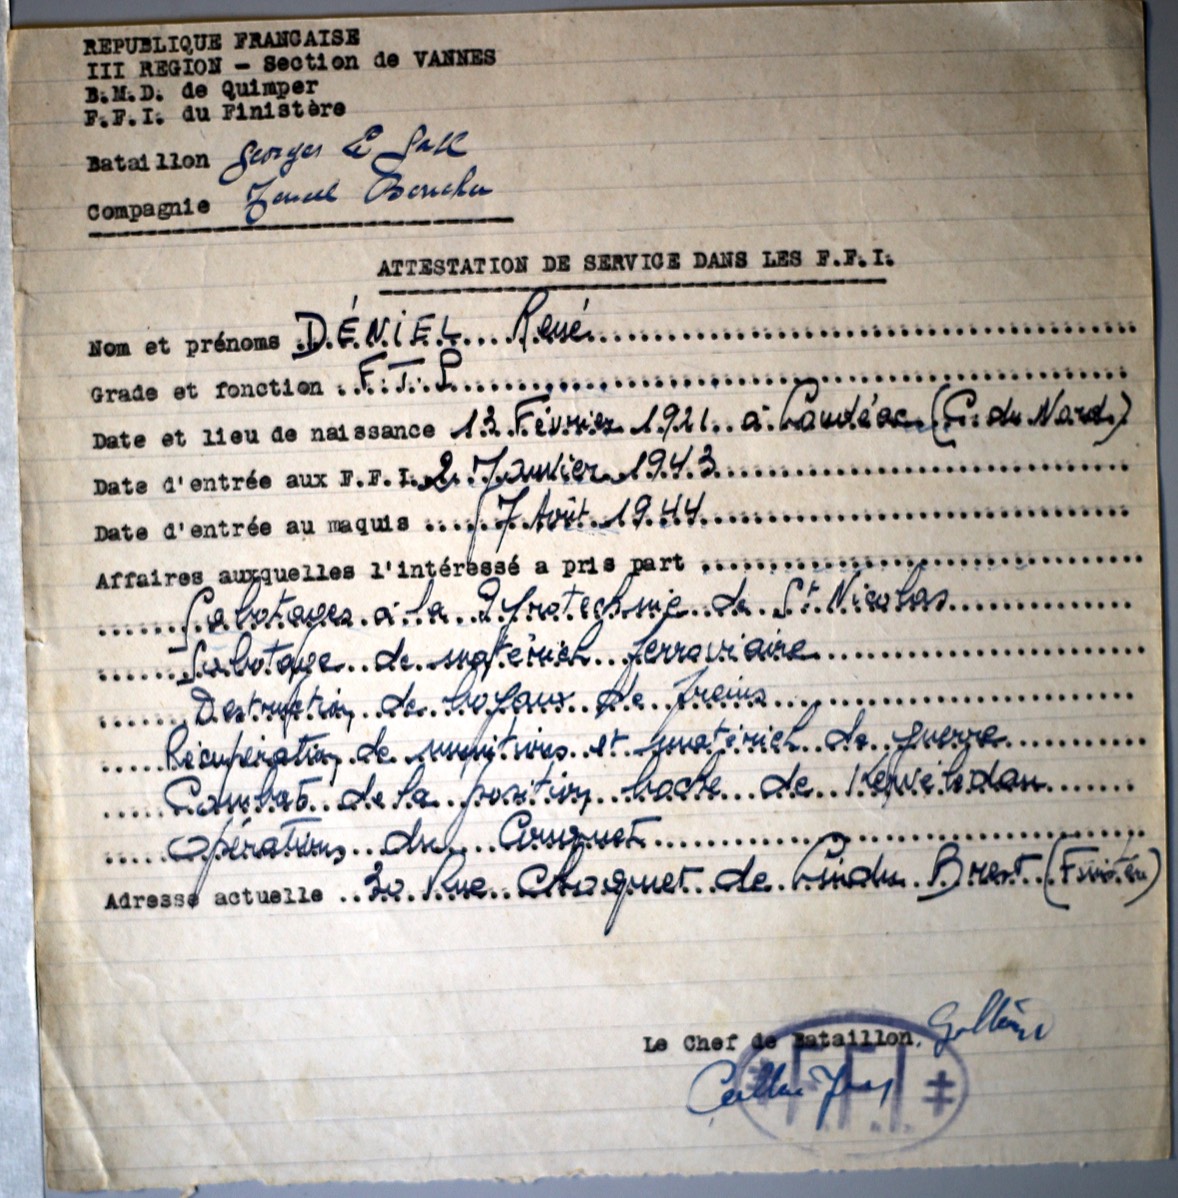 REPUBLIQUE FRANCAISE
III REGION - Section de VANNES
B.M.D. de Quimper
F.F.I. du Finistère
Bataillon Georges Le Gall
Compagnie
ATTESTATION DE SERVICE DANS LES F.F.I.
Nom et prénoms DÉNIEL René
Grade et fonction F.T.P
Date et lieu de naissance 13 Février 1921 à Loudéac (C. du Nord)
Date d'entrée aux F.F.I. 2 Janvier 1943
Date d'entrée au maquis 7 Août 1944
Affaires auxquelles l'intéressé a pris part
Sabotages à la Pyrotechnie de St Nicolas
Sabotage de matériel ferroviaire
Destruction de boyaux de freins
Récupération de munitions et matériel de guerre
Combat de la position boche de
Opérations du Conquet
Adresse actuelle 30 Rue Choquet de Lindu Brest
Le Chef de Bataillon,
FFI